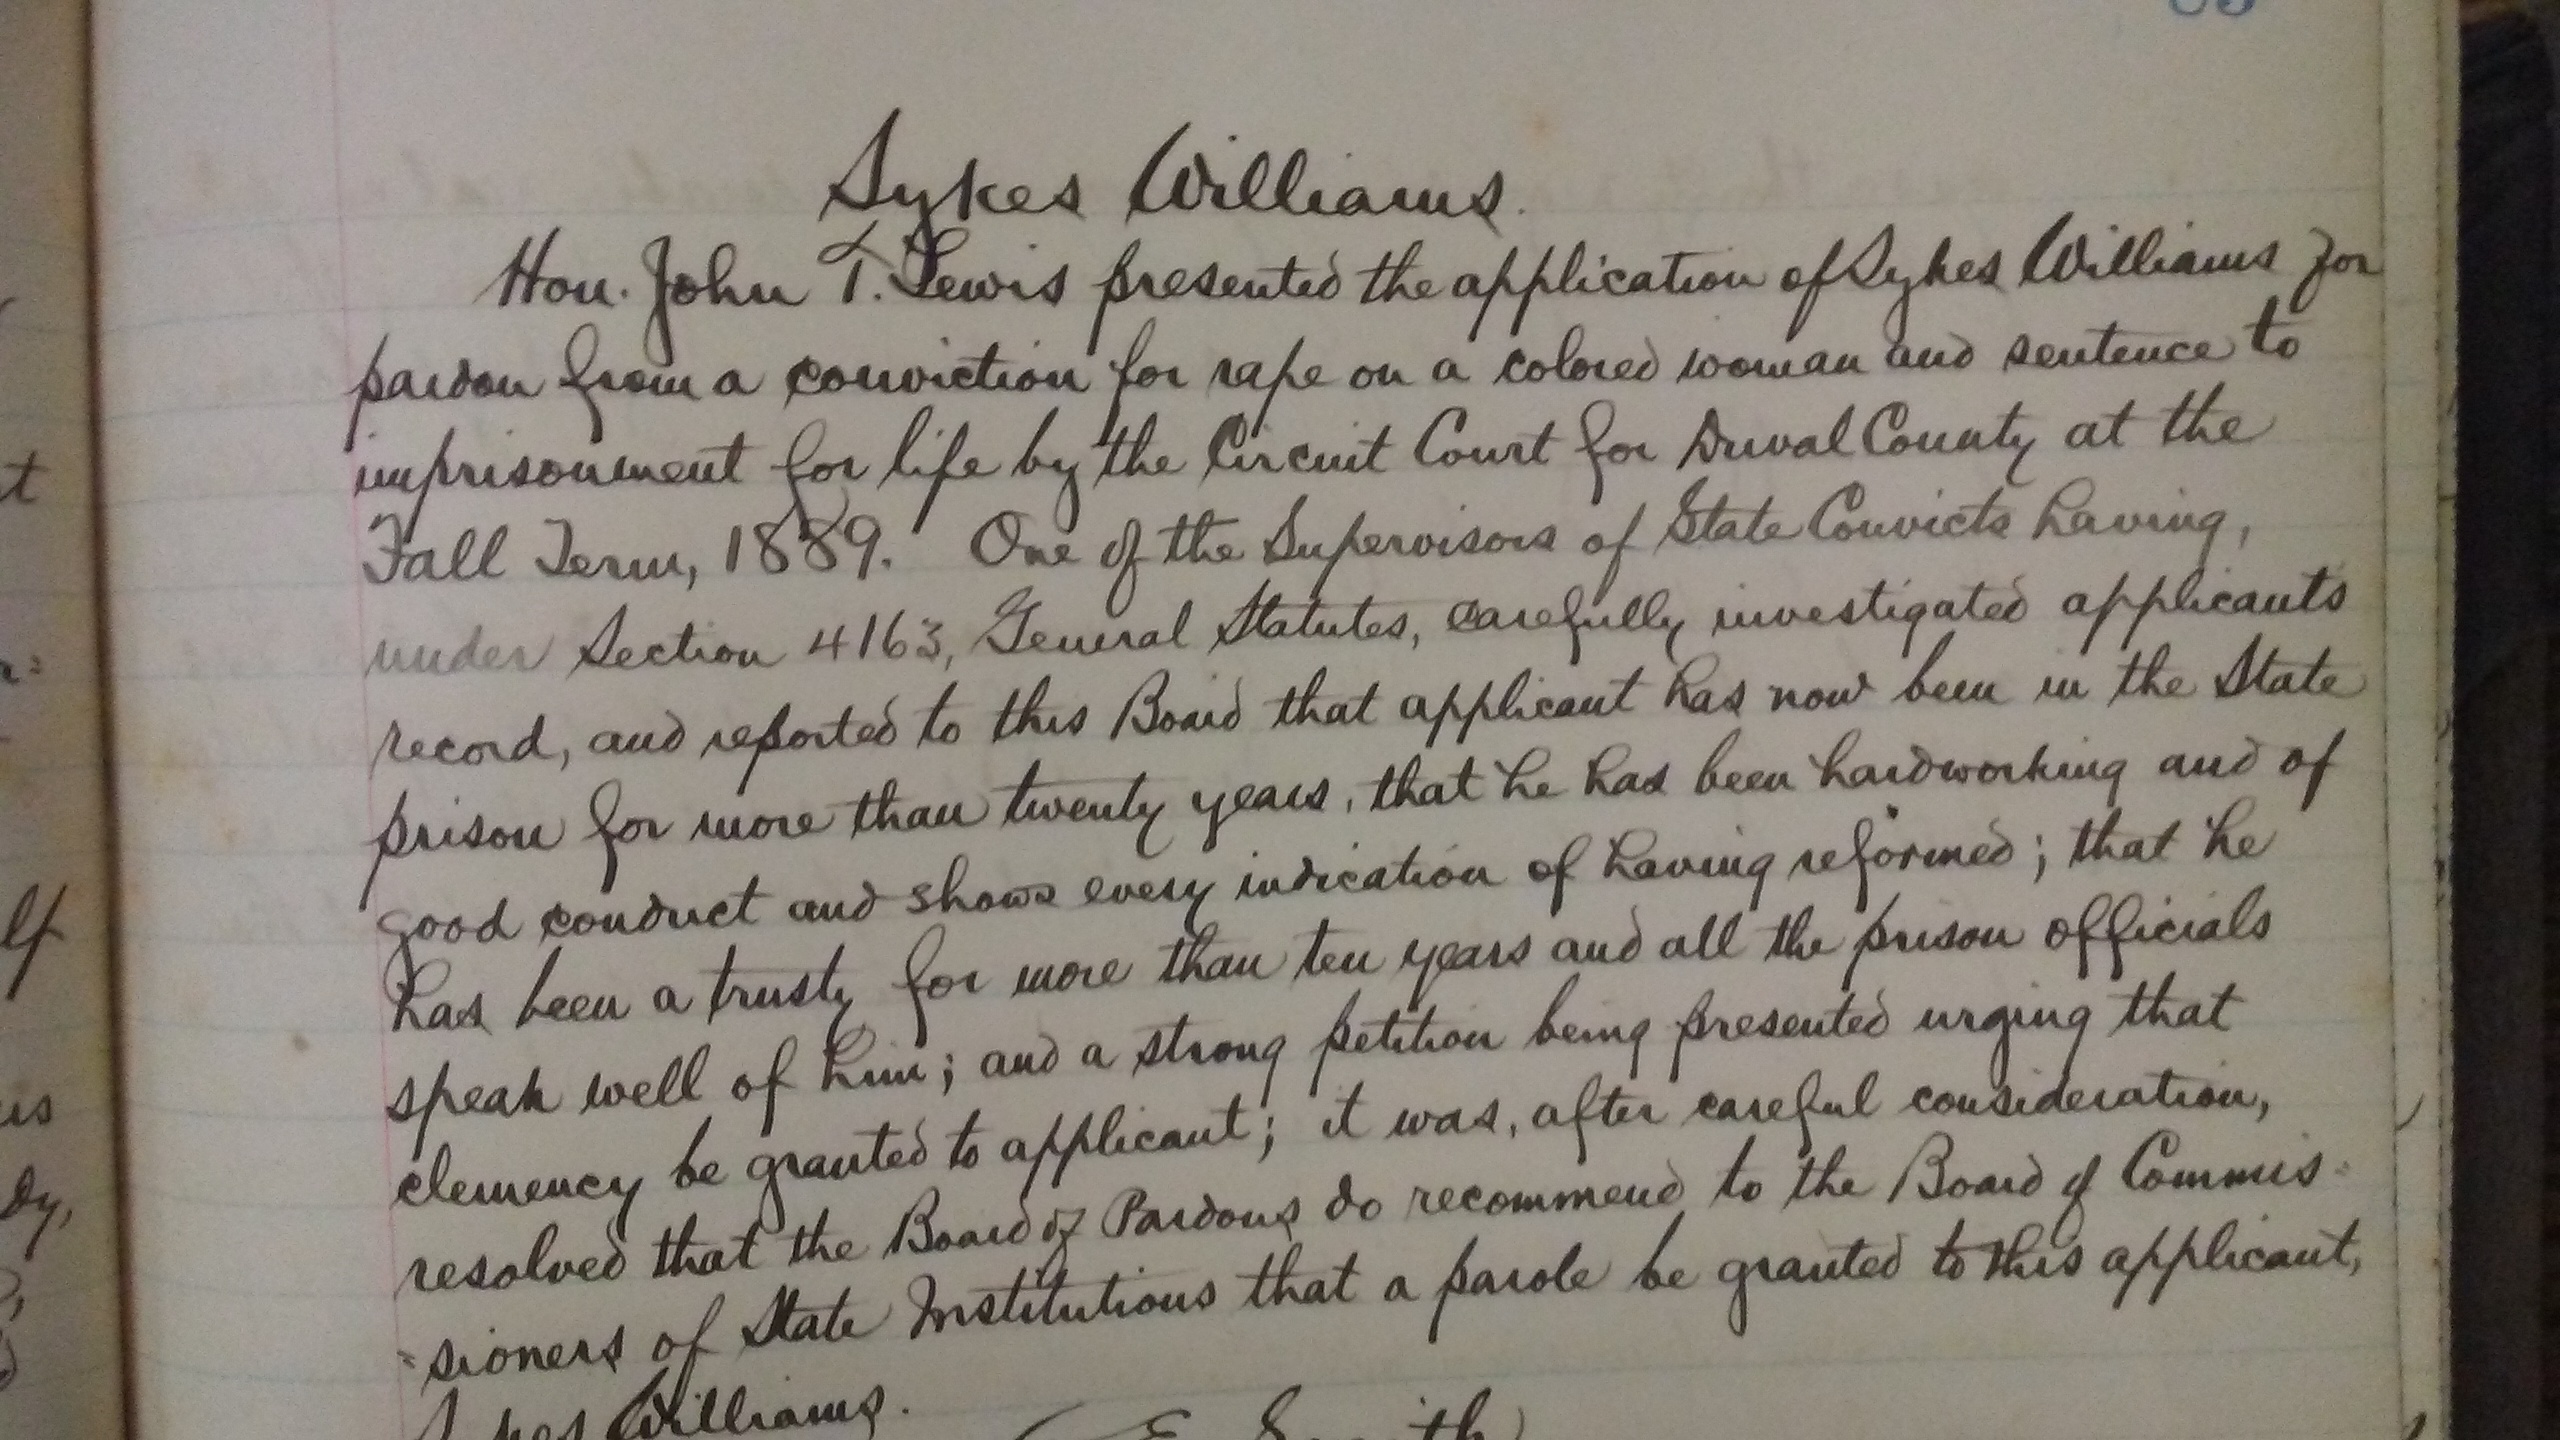 Sykes Williams.
Hon. John T. Lewis presented the application of Sykes Williams for
pardon from a conviction for rape on a colored woman and sentence to
imprisonment for life by the Circuit Court for Duval County at the
Fall Term, 1889. One of the Supervisors of State Convicts having,
under Section 4163, General Statutes, carefully investigated applicants
record, and reported to this Board that applicant has now been in the State
prison for more than twenty years, that he has been hardworking and of
good conduct and shows every indication of having reformed; that he
has been a trusty for more than ten years and all the prison officials
speak well of him; and a strong petition being presented urging that
clemency be granted to applicant; it was, after careful consideration,
resolved that the Board of Pardons do recommend to the Board of Commis-
=sioners of State Institutions that a parole be granted to this applicant,
Sykes Williams.